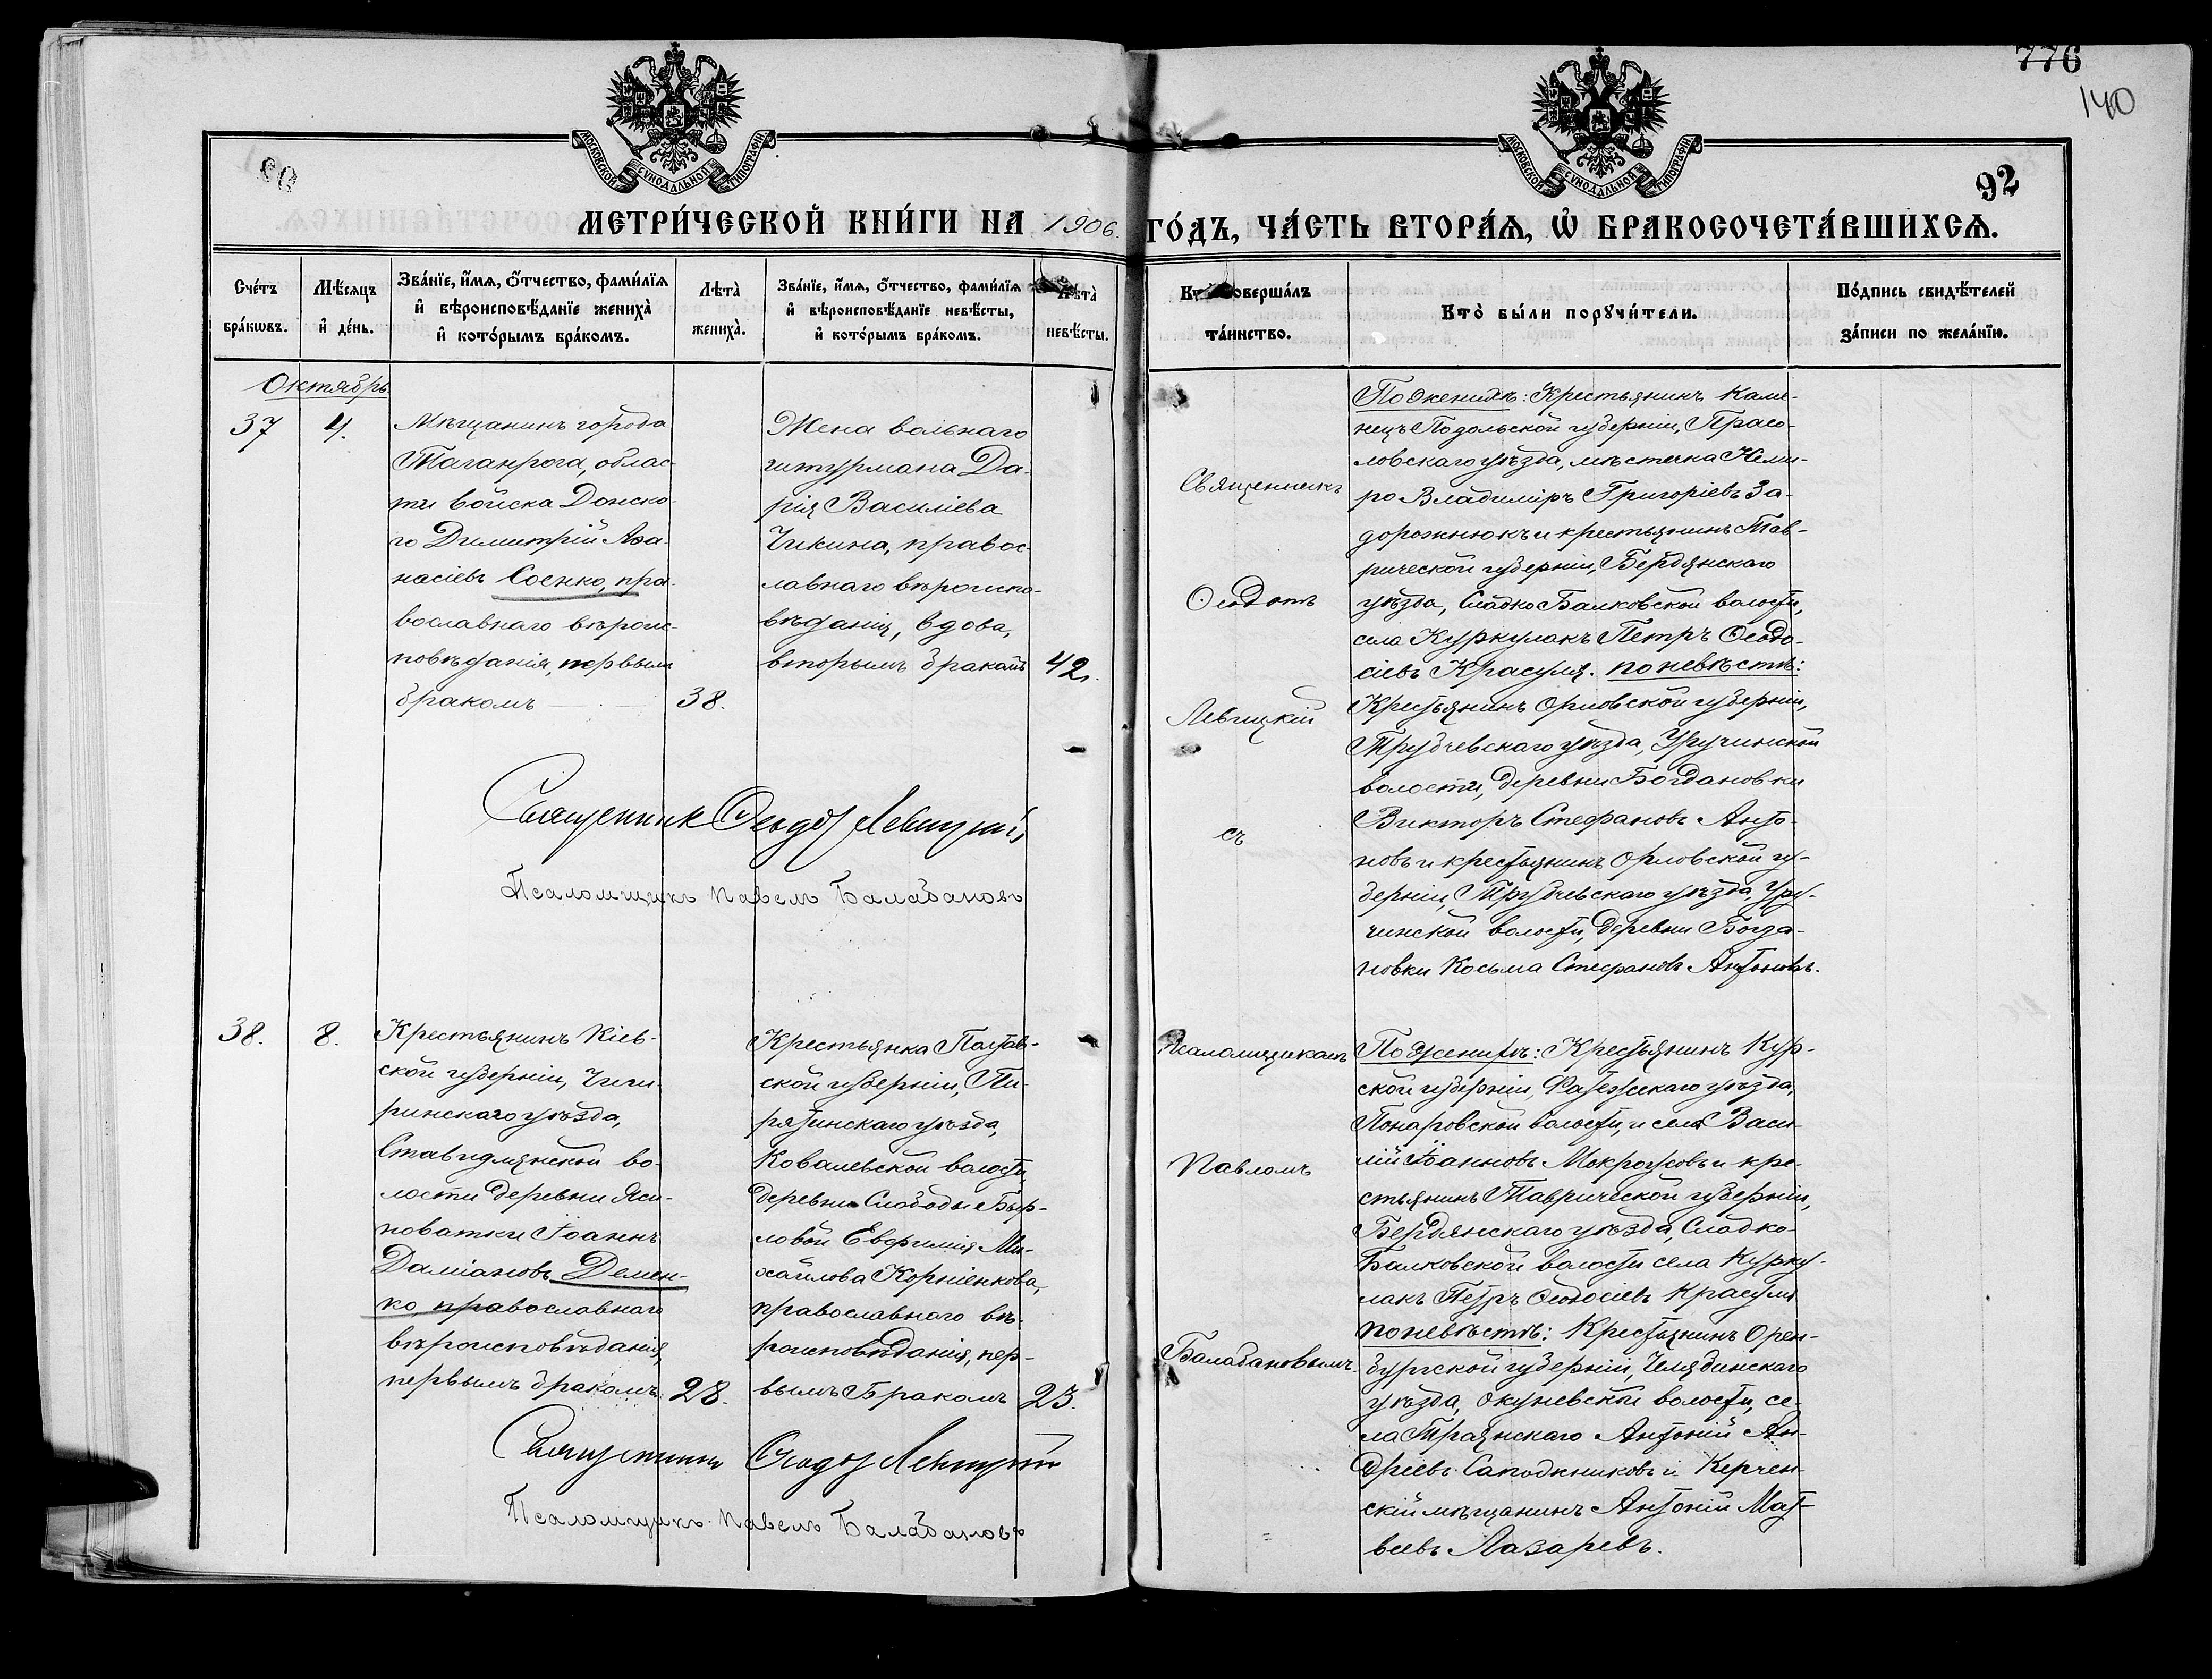 776
140
92
МОСКОВСКОЙ СѴНОДАЛЬНОЙ ТИПОГРАФІИ
МОСКОВСКОЙ СѴНОДАЛЬНОЙ ТИПОГРАФІИ
МЕТРИ́ЧЕСКОЙ КНИ́ГИ НА 1906. ГО́ДЪ, ЧА́СТЬ ВТОРА́Ѧ, Ѽ БРАКОСОЧЕТА́ВШИХСѦ.
Сче́тъ бра́кѡвъ.
Мѣ́сяцъ и́ де́нь.
Зва́нїе, и́мѧ, ѻ́тчество, фами́лїѧ
и́ вѣроисповѣ́данїе жениха̀
и́ кото́рымъ бра́комъ.
Лѣта̀ жениха̀.
Зва́нїе, и́мѧ, ѻ́тчество, фами́лїѧ
и́ вѣроисповѣ́данїе невѣ́сты,
и́ кото́рымъ бра́комъ.
Лѣта̀ невѣ́сты.
Кто̀ соверша́лъ
та́инство.
Кто̀ бы́ли порꙋчи́тели.
По́дпись свидѣ́телей
за́писи по жела́нїю.
Октябрь
37
4.
Мѣщанинъ города
Таганрога, облас-
ти войска Донско-
го Димитрій Аѳа-
насіевъ Соенко, пра-
вославнаго вѣроис-
повѣданія, первымъ
бракомъ
38.
Жена вольнаго
штурмана Да-
рія Василіева
Чикина, правос-
лавнаго вѣроиспо-
вѣданія, вдова,
вторымъ бракомъ
42.
Священникъ
Ѳеодотъ
Левицкій
съ
По женихѣ: Крестьянинъ Каме-
нецъ Подольской губерніи, Праско-
ловскаго уѣзда, мѣстечка
Владиміръ Григоріевъ За-
дорожнюкъ и крестьянинъ Тав-
рической губерніи, Бердянскаго
уѣзда, Сладко Балковской волости,
села Куркулакъ Петръ Ѳеодо-
сіевъ Красуля. по невѣстѣ:
Крестьянинъ Орловской губерніи,
Трубчевскаго уѣзда, Уручинской
волости, деревни Богдановки
Викторъ Стефановъ Анто-
новъ и крестьянинъ Орловской гу-
берніи, Трубчевскаго уѣзда, Уру-
чинской волости, деревни Богда-
новки Косьма Стефановъ Антоновъ.
Священник Ѳеодот Левицкій
Псаломщикъ Павелъ Балабановъ
38.
8.
Крестьянинъ Кіев-
ской губерніи, Чиги-
ринскаго уѣзда,
Ставидлянской во-
лости деревни Яси-
новатки Іоаннъ
Даміановъ Демен-
ко, православнаго
вѣроисповѣданія,
первымъ бракомъ.
28.
Крестьянка Полтав-
ской губерніи, Пи-
рятинскаго уѣзда,
Ковалевской волости,
деревни Слободы Быр-
ловой Евфимія Ми-
хайлова Корніенкова,
православнаго вѣ-
роисповѣданія, пер-
вымъ Бракомъ
23.
Псаломщикомъ
Павломъ
Балабановымъ
По женихѣ: Крестьянинъ Кур-
ской губерніи, Фатежскаго уѣзда,
Понаровской волости, и села Васи-
лій Іоанновъ Мокроусовъ и кре-
стьянинъ Таврической губерніи,
Бердянскаго уѣзда, Сладко-
Балковской волости села Курку-
лакъ Петръ Ѳеодосіевъ Красуля
по невѣстѣ: Крестьянинъ Орен-
бургской губерніи, Челябинскаго
уѣзда, Окуневской волости, се-
ла Траянскаго Антоній Ан-
дреевъ Сапожниковъ и Керчен-
скій мѣщанинъ Антоній Мат-
веевъ Лазаревъ.
Священникъ Ѳеодот Левицкій
Псаломщикъ Павелъ Балабановъ